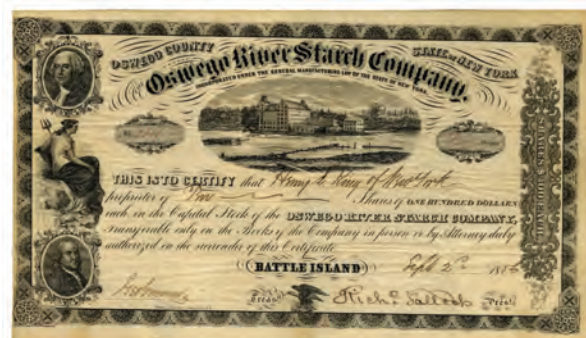 OSWEGO COUNTY STATE OF NEW YORK
Oswego River Starch Company.
INCORPORATED UNDER THE GENERAL MANUFACTURING LAW OF THE STATE OF NEW YORK.
THIS IS TO CERTIFY that Henry King of New York
proprietor of Shares of ONE HUNDRED DOLLARS
each in the Capital Stock of the OSWEGO RIVER STARCH COMPANY,
Transferable only on the Books of the Company in person or by Attorney duly
authorized on the surrender of this Certificate.
BATTLE ISLAND Sept 2d 18
Treas. Richd. Prest.